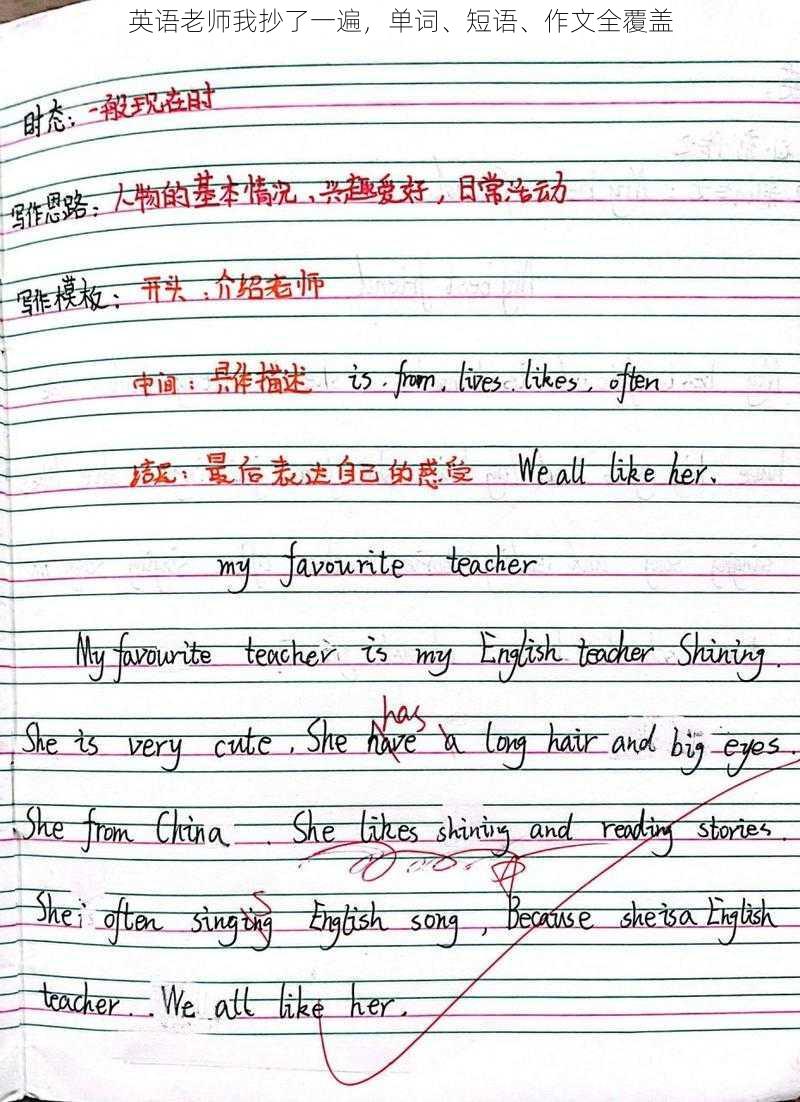 英语老师我抄了一遍，单词、短语、作文全覆盖
时态：一般现在时
写作思路：人物的基本情况、兴趣爱好，日常活动
写作模板：开头：介绍老师
中间：具体描述 is. from. lives. likes. often
结尾：最后表达自己的感受 We all like her.
my favourite teacher
My favourite teacher is my English teacher Shining.
has
She is very cute. She have a long hair and big eyes.
She from China. She likes shining and reading stories.
s
She often singing English song, Because she is a English
teacher. We all like her.